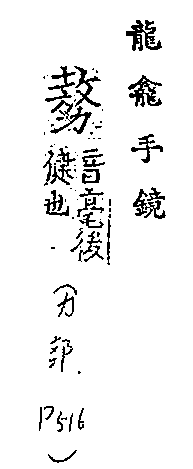 龍龕手鏡
𠢕
音毫後
健也
力部.
P516)